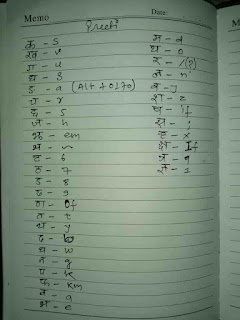 Memo
Date:
Preeti
क - s
ख - v
ग - u
घ - 3
ङ - a (Alt + 0170)
च - r
छ - 5
ज - h
झ - em
ट - 6
ठ - 7
ड - 8
ढ - 9
ण - 0f
त - t
थ - y
द - b
ध - w
न - g
प - k
फ - km
ब - a
भ - e
म - d
य - o
र - /(?)
ल - n
व - j
श - z
ष - if
स - ;
ह - x
क्ष - If
त्र - q
ज्ञ - 1